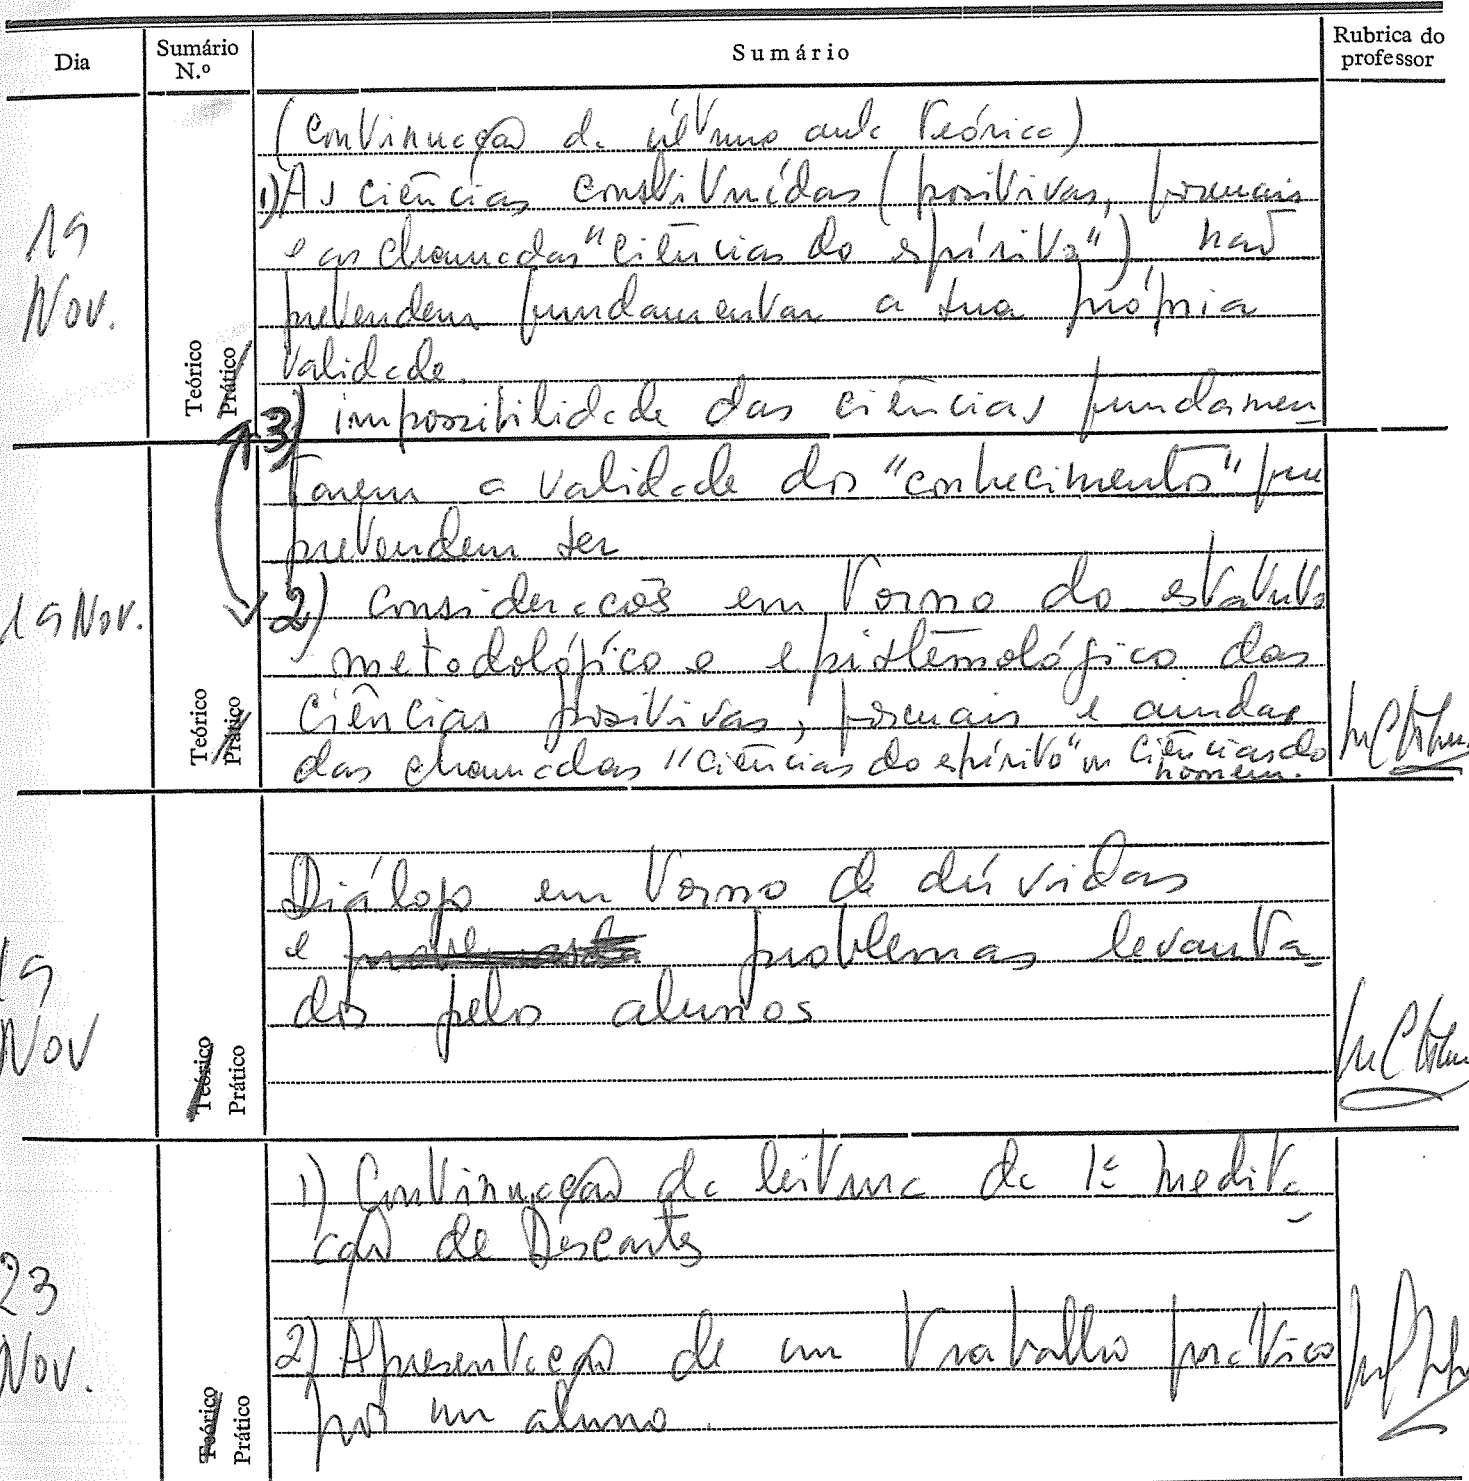 Dia
Sumário N.º
Sumário
Rubrica do professor
19 Nov.
Teórico
Prático
(Continuação da última aula teórica)
1) As ciências constituídas (positivas, formais
e as chamadas "ciências do espírito") não
pretendem fundamentar a sua própria
validade.
3) impossibilidade das ciências fundamen
19 Nov.
Teórico
Prático
tarem a validade dos "conhecimentos" que
pretendem ser
2) Considerações em torno do estatuto
metodológico e epistemológico das
ciências positivas, formais e ainda
das chamadas "ciências do espírito" ou ciências do
homem.
19 Nov
Teórico
Prático
Diálogo em torno de dúvidas
e problemas levanta-
dos pelos alunos
23 Nov.
Teórico
Prático
1) Continuação da leitura da 1ª medita-
ção de Descartes
2) Apresentação de um trabalho prático
por um aluno.